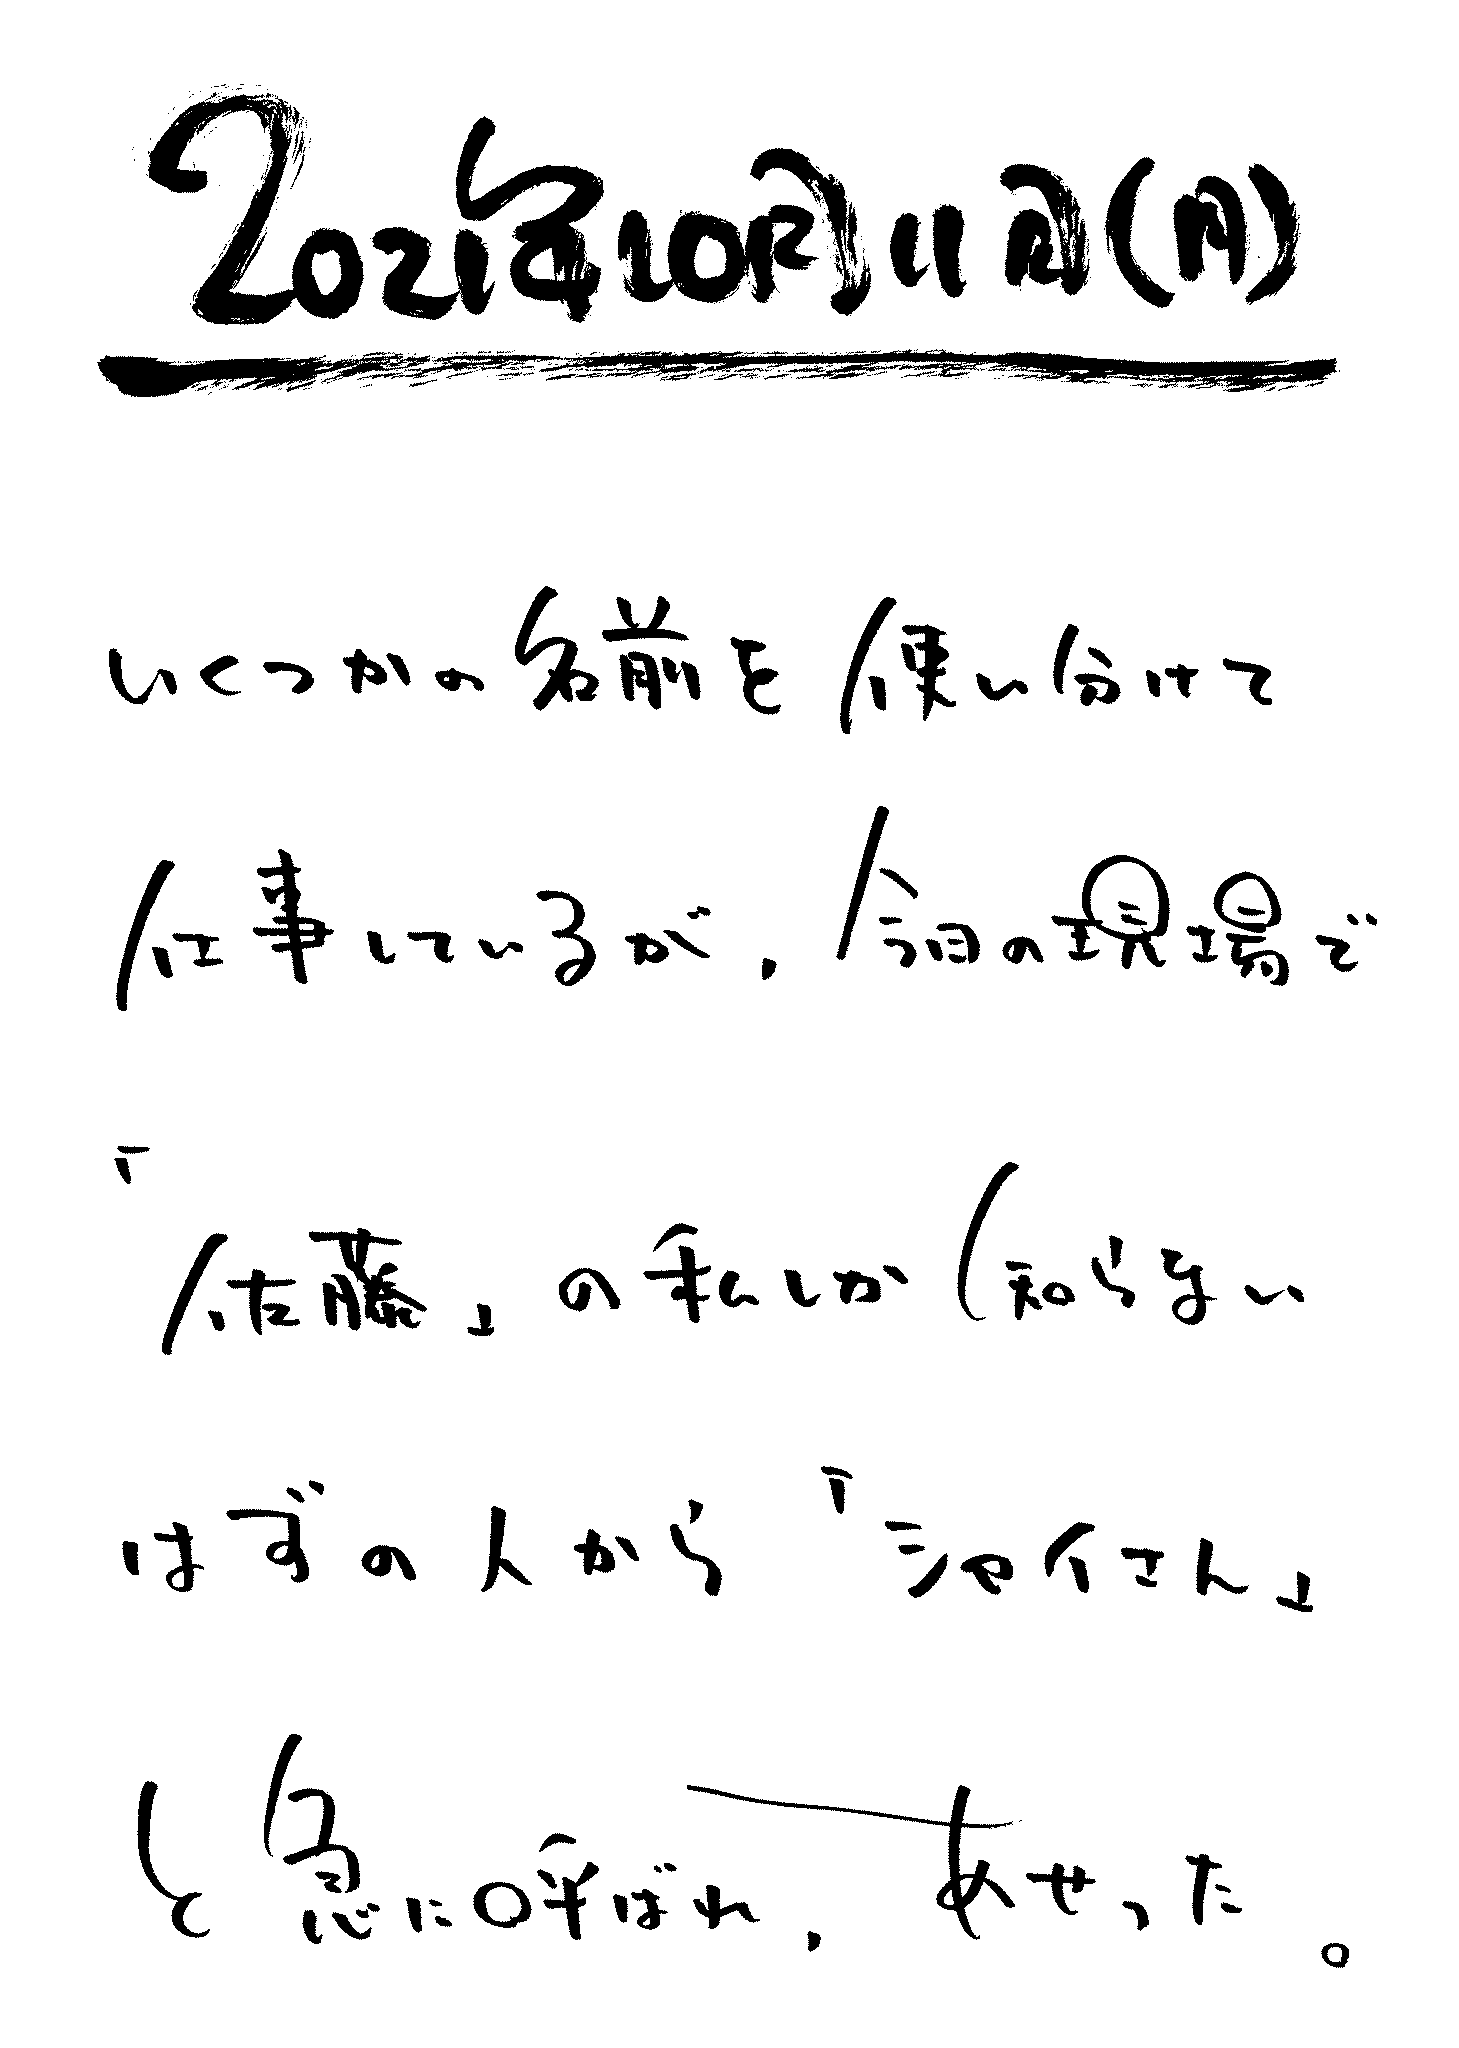 2021年10月11日(月)
いくつかの名前を使い分けて
仕事しているが、今日の現場で
「佐藤」の私しか知らない
はずの人から「シャイさん」
と急に呼ばれ、あせった。